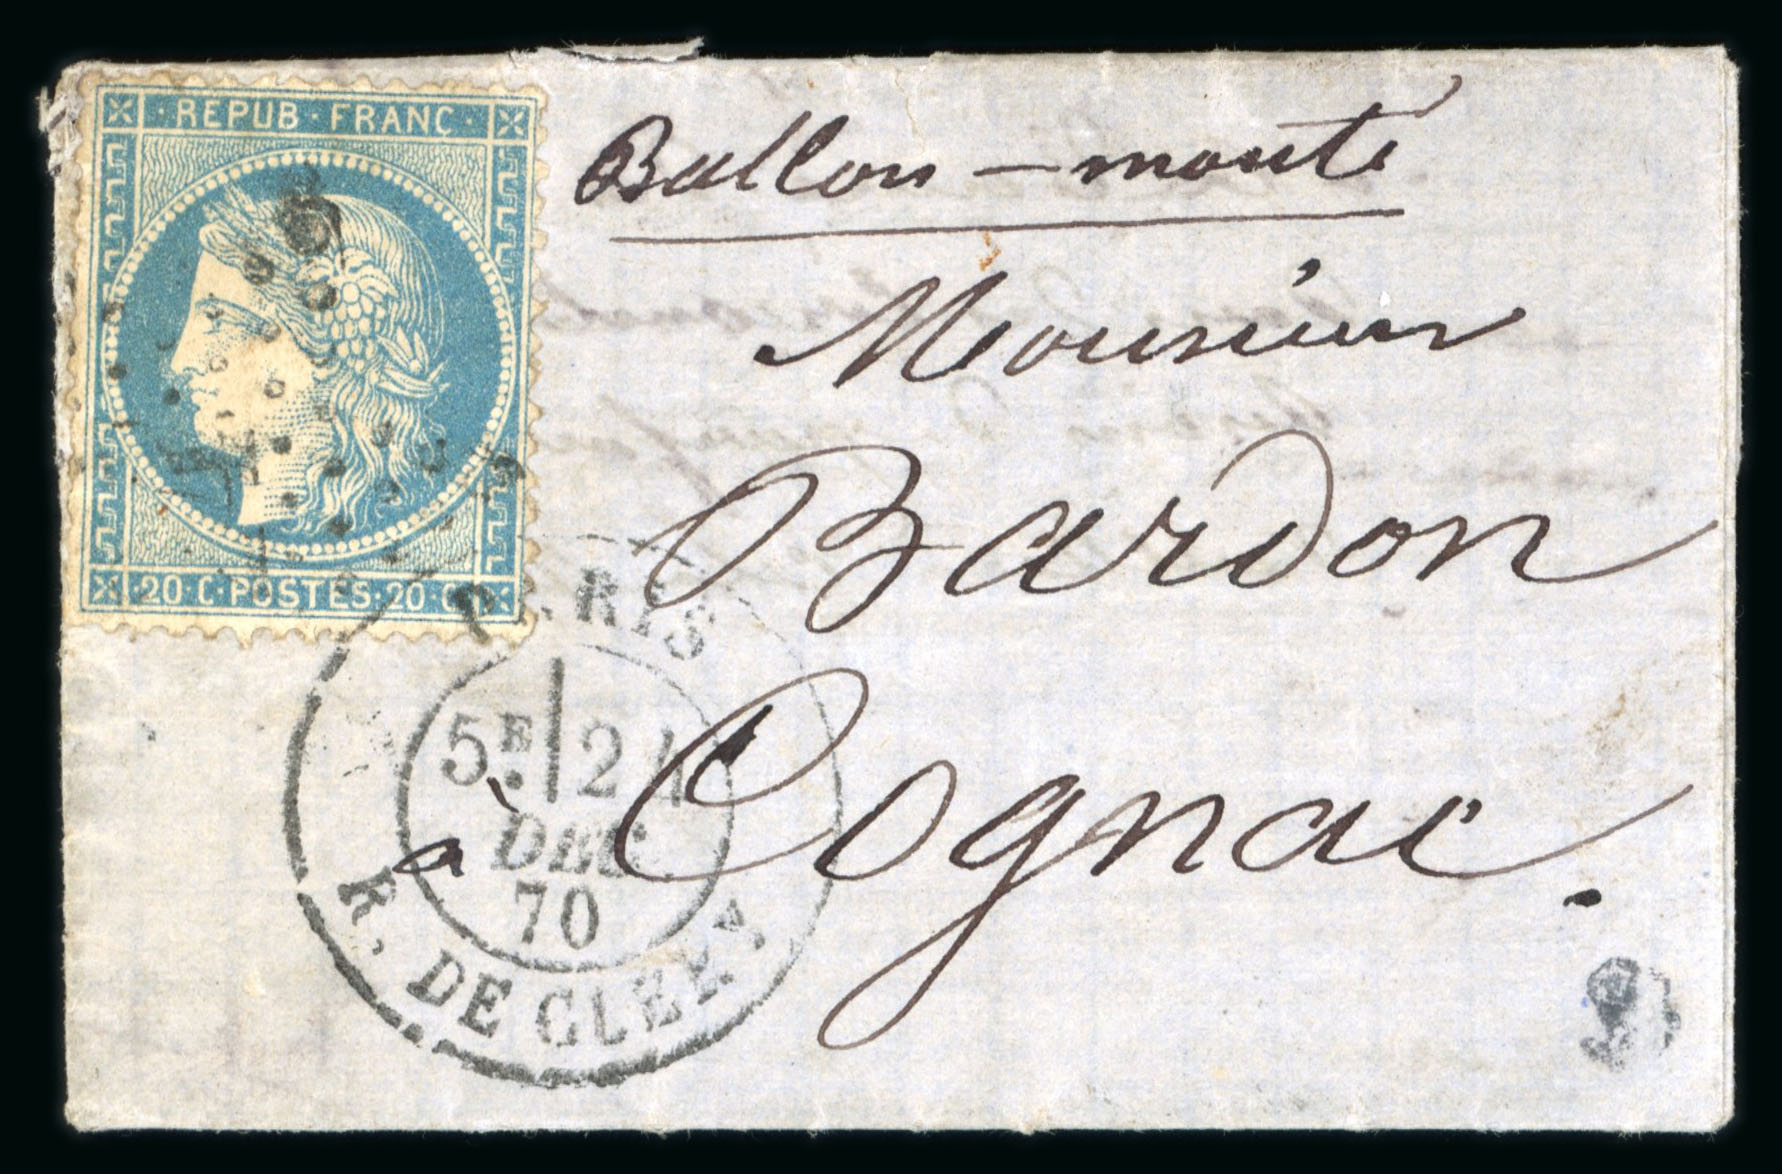 · REPUB · FRANC ·
Ballon - monté
Monsieur
Bardon
· 20 · C · POSTES · 20 · C ·
PARIS
5E 24
DEC
70
R. DE CLERY
à Cognac.